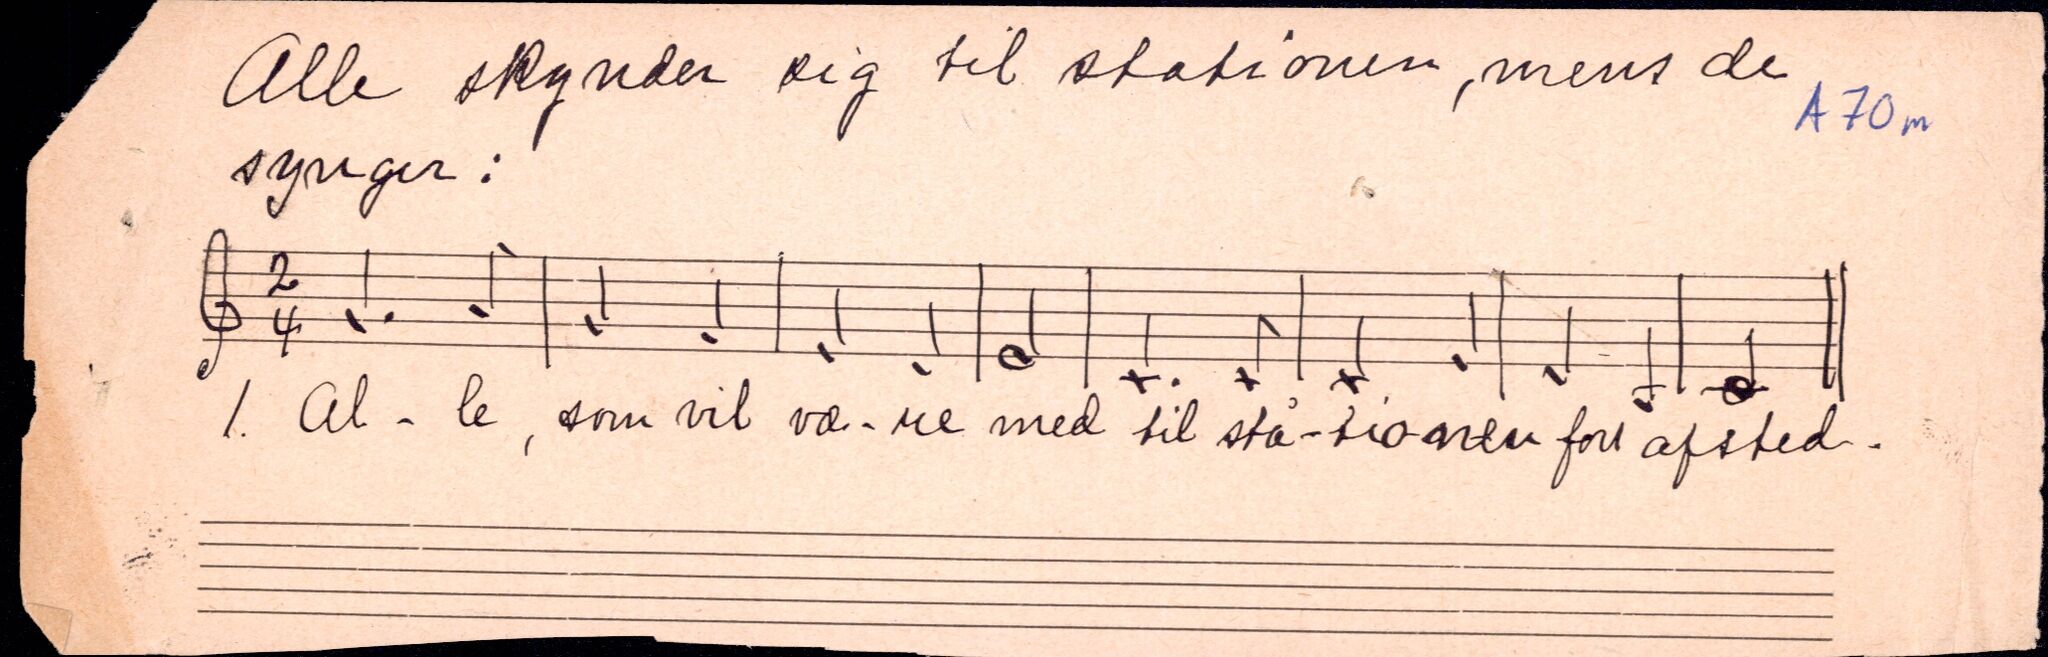 Alle skynder sig til stationen, mens de
A 70 m
synger:
2
4
1. Al - le, som vil væ - re med til sta - tionen for afsted.